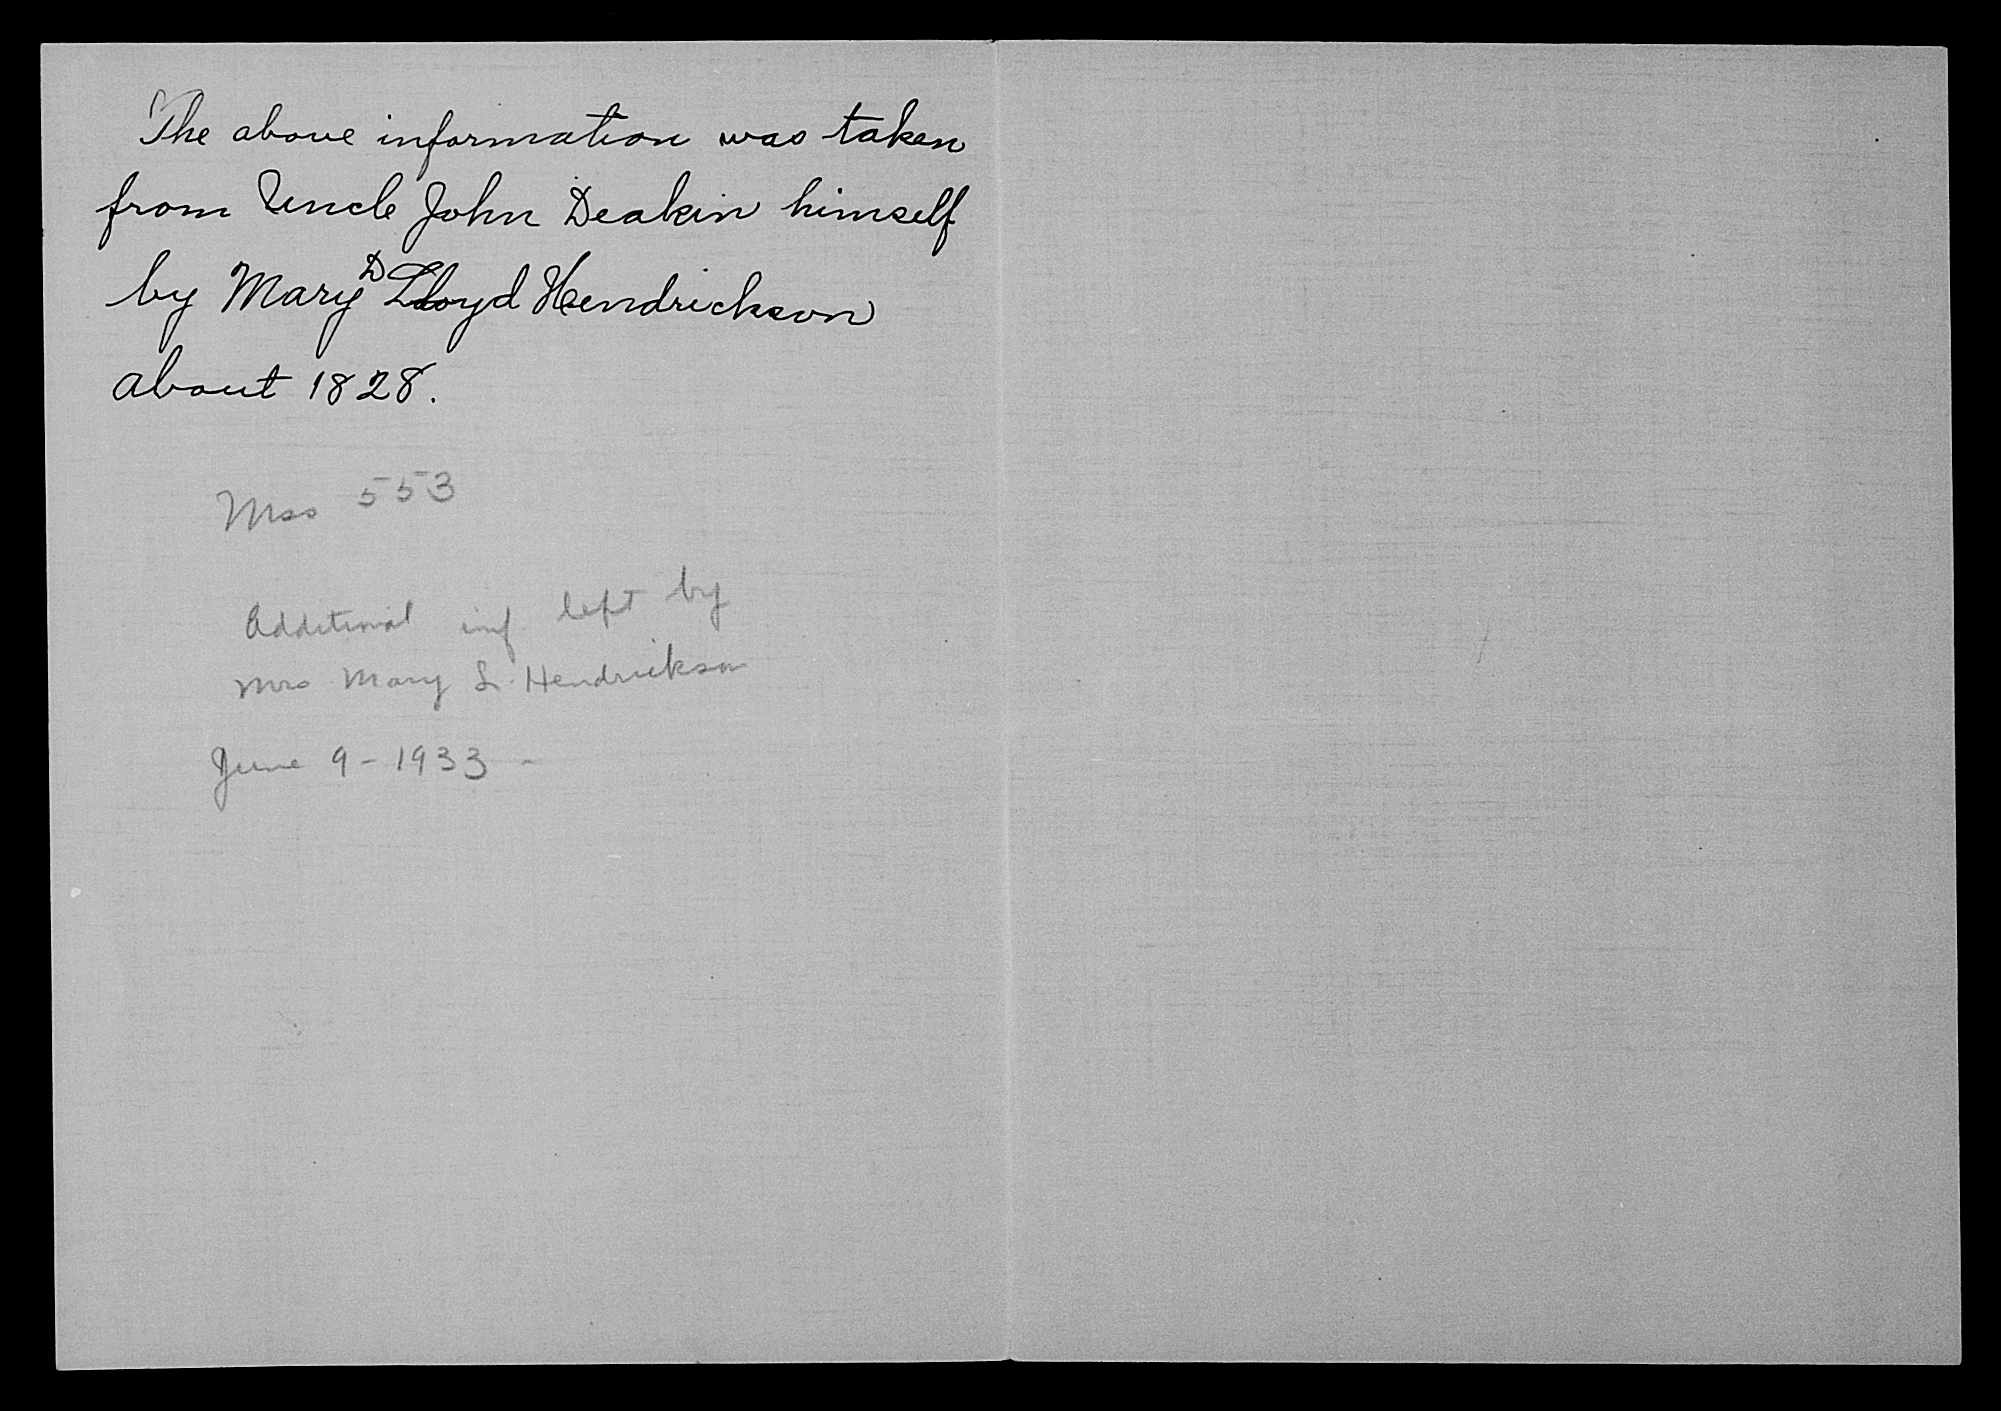 The above information was taken
from Uncle John Deakin himself
by Mary D Lloyd Hendrickson
about 1828.
Mss 553
Additional inf left by
Mrs Mary L. Hendrickson
June 9 - 1933 -